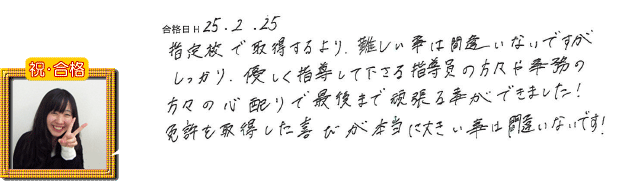 合格日 H 25.2.25
指定校で取得するより、難しい事は間違いないですが
しっかり、優しく指導して下さる指導員の方々や事務の
方々の心配りで最後まで頑張る事ができました!
免許を取得した喜びが本当に大きい事は間違いないです!
祝・合格